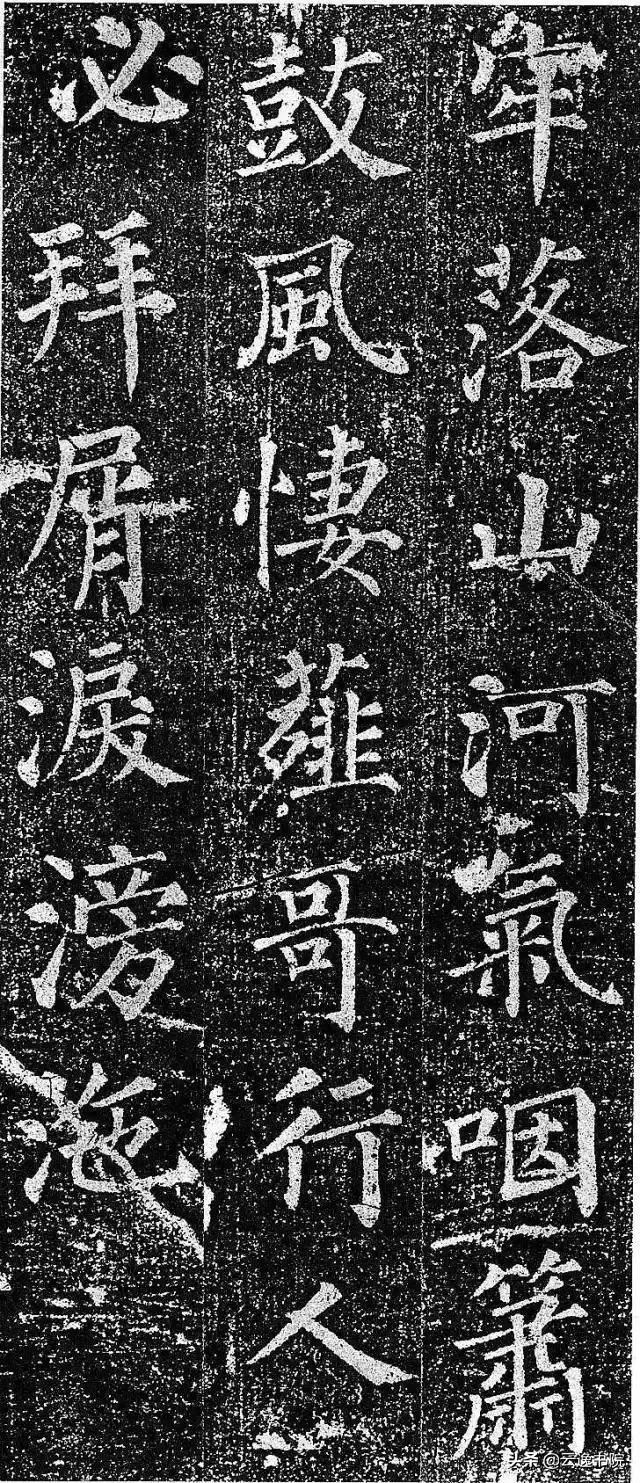 牢落山河氣咽簫
鼓風悽薤哥行人
必拜屑淚滂沲
头条@云逸书院